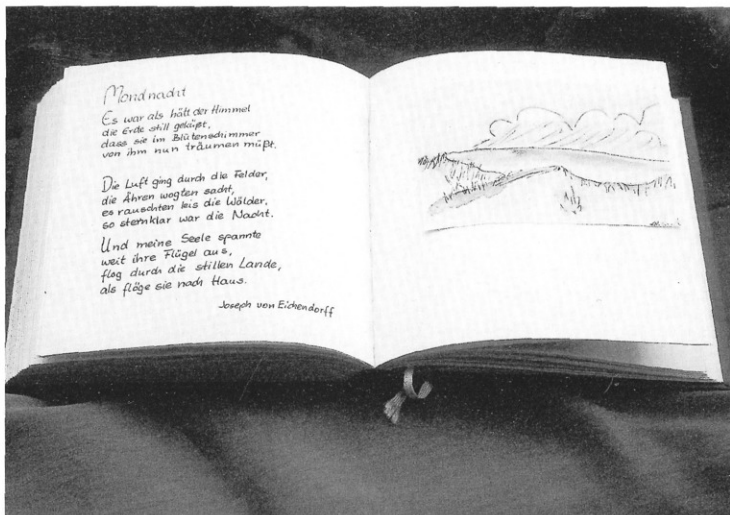 Mondnacht
Es war als hätt der Himmel
die Erde still geküßt,
dass sie im Blütenschimmer
von ihm nun träumen müßt.
Die Luft ging durch die Felder,
die Ähren wogten sacht,
es rauschten leis die Wälder,
so sternklar war die Nacht.
Und meine Seele spannte
weit ihre Flügel aus,
flog durch die stillen Lande,
als flöge sie nach Haus.
Joseph von Eichendorff